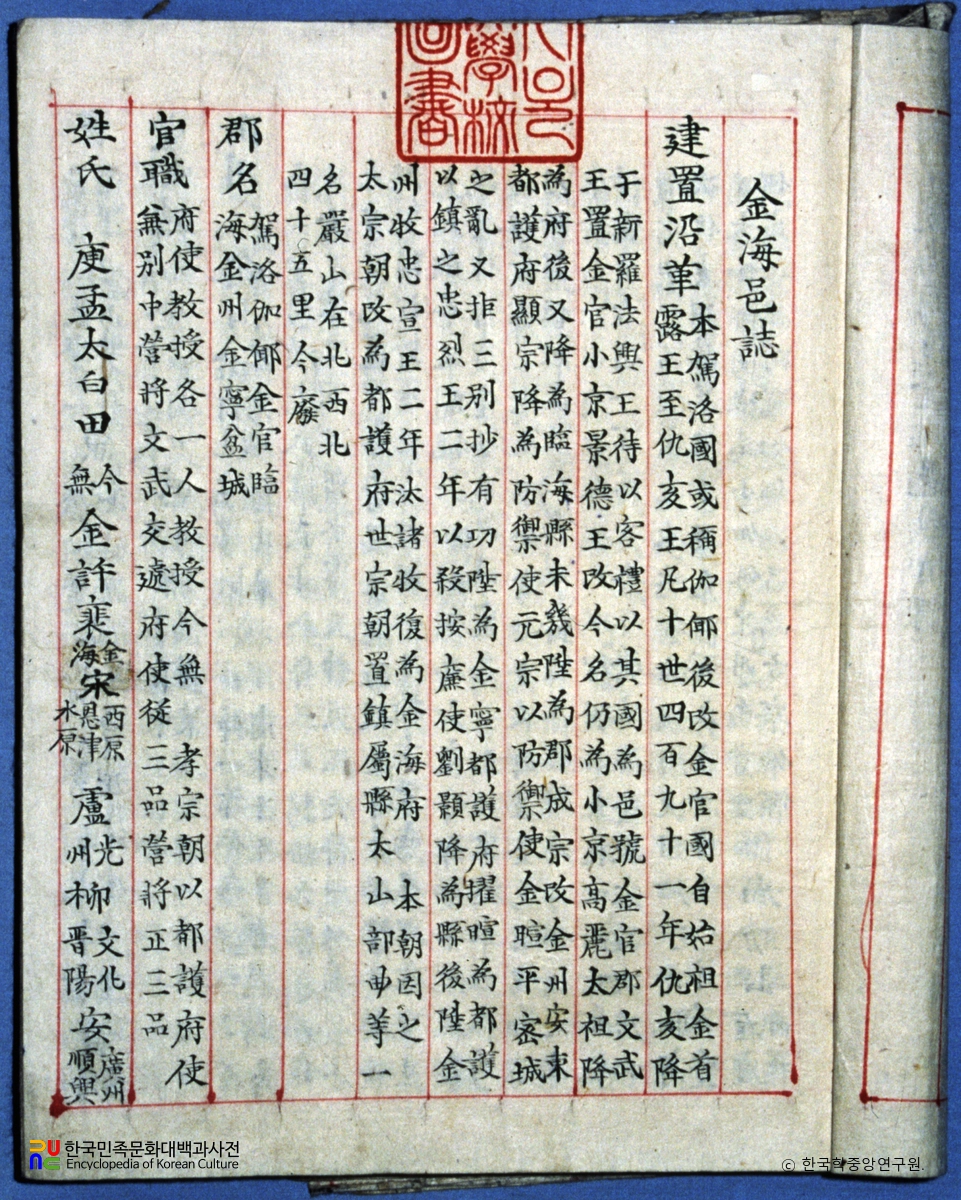 金海邑誌
建置沿革 本駕洛國或稱伽倻後改金官國自始祖金首
露王至仇亥王凡十世四百九十一年仇亥降
于新羅法興王待以客禮以其國為邑號金官郡文武
王置金官小京景德王改今名仍為小京高麗太祖降
為府後又降為臨海縣未幾陞為郡成宗改金州安東
都護府顯宗降為防禦使元宗以防禦使金晅平密城
之亂又拒三別抄有功陞為金寧都護府擢晅為都護
以鎮之忠烈王二年以殺按廉使劉顥降為縣後陞金
州牧忠宣王二年汰諸牧復為金海府 本朝因之
太宗朝改為都護府世宗朝置鎮屬縣太山部曲等一
名嚴山在北西北
四十五里今廢
郡名 駕洛伽倻金官臨
海金州金寧盆城
官職 府使教授各一人教授今無 孝宗朝以都護府使
無別中營將文武交遞府使從三品營將正三品
姓氏 庾孟太白田 今無 金許裵 金海 宋 西原 恩津 水原 盧 光州 柳 文化 晋陽 安 廣州 順興
學校
圖書
한국민족문화대백과사전
Encyclopedia of Korean Culture
ⓒ 한국학중앙연구원.